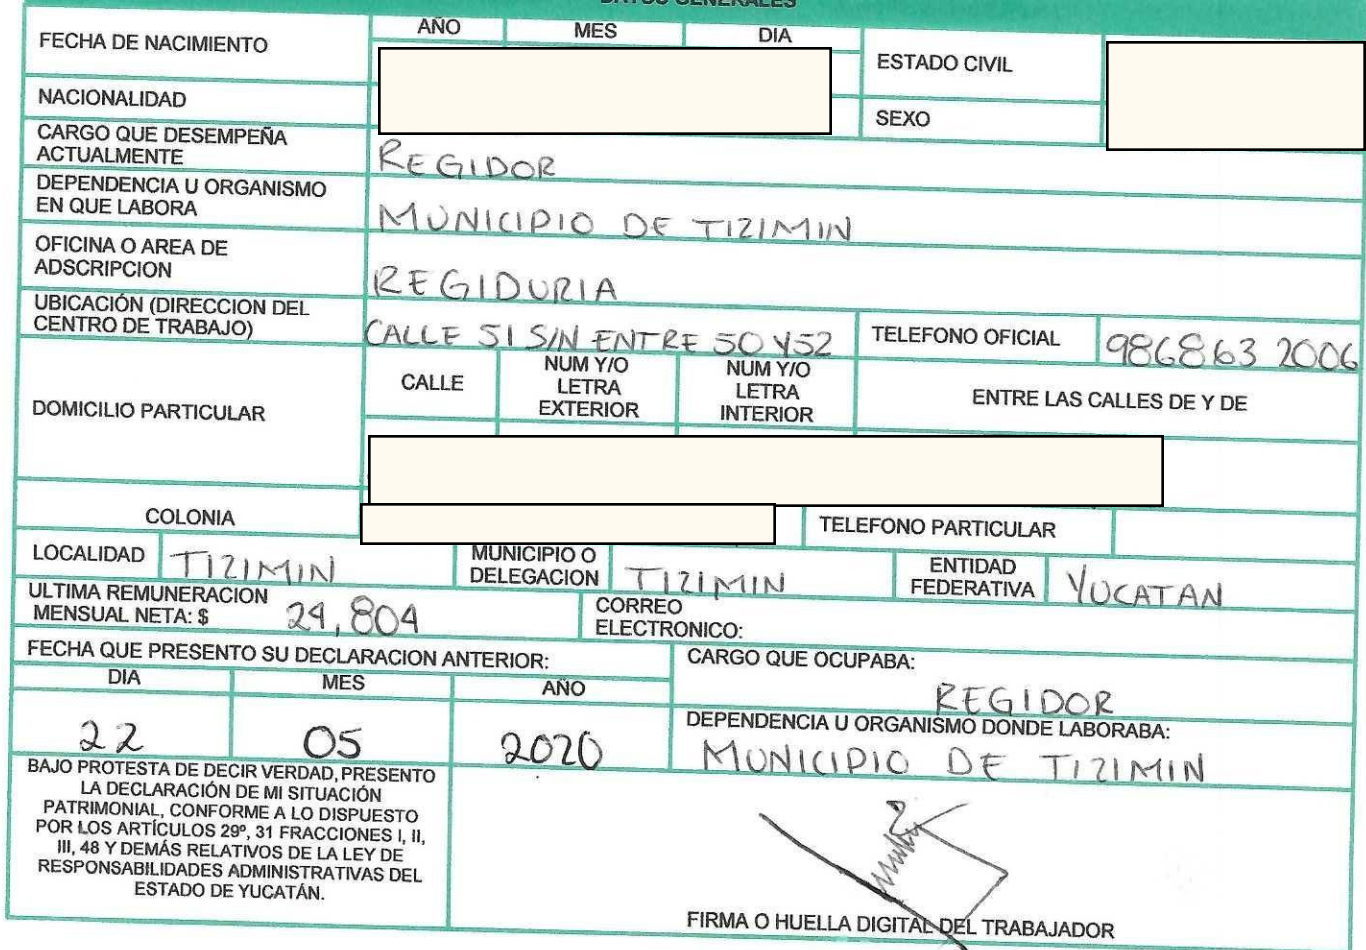 DATOS GENERALES
FECHA DE NACIMIENTO
AÑO MES DIA
ESTADO CIVIL
NACIONALIDAD
SEXO
CARGO QUE DESEMPEÑA
ACTUALMENTE
REGIDOR
DEPENDENCIA U ORGANISMO
EN QUE LABORA
MUNICIPIO DE TIZIMIN
OFICINA O AREA DE
ADSCRIPCION
REGIDURIA
UBICACIÓN (DIRECCION DEL
CENTRO DE TRABAJO)
CALLE 51 S/N ENTRE 50 Y 52
TELEFONO OFICIAL
986863 2006
DOMICILIO PARTICULAR
CALLE
NUM Y/O
LETRA
EXTERIOR
NUM Y/O
LETRA
INTERIOR
ENTRE LAS CALLES DE Y DE
COLONIA
TELEFONO PARTICULAR
LOCALIDAD
TIZIMIN
MUNICIPIO O
DELEGACION
TIZIMIN
ENTIDAD
FEDERATIVA
YUCATAN
ULTIMA REMUNERACION
MENSUAL NETA: $ 24,804
CORREO
ELECTRONICO:
FECHA QUE PRESENTO SU DECLARACION ANTERIOR:
DIA MES AÑO
22 05 2020
CARGO QUE OCUPABA:
REGIDOR
DEPENDENCIA U ORGANISMO DONDE LABORABA:
MUNICIPIO DE TIZIMIN
BAJO PROTESTA DE DECIR VERDAD, PRESENTO
LA DECLARACIÓN DE MI SITUACIÓN
PATRIMONIAL, CONFORME A LO DISPUESTO
POR LOS ARTÍCULOS 29º, 31 FRACCIONES I, II,
III, 48 Y DEMÁS RELATIVOS DE LA LEY DE
RESPONSABILIDADES ADMINISTRATIVAS DEL
ESTADO DE YUCATÁN.
FIRMA O HUELLA DIGITAL DEL TRABAJADOR